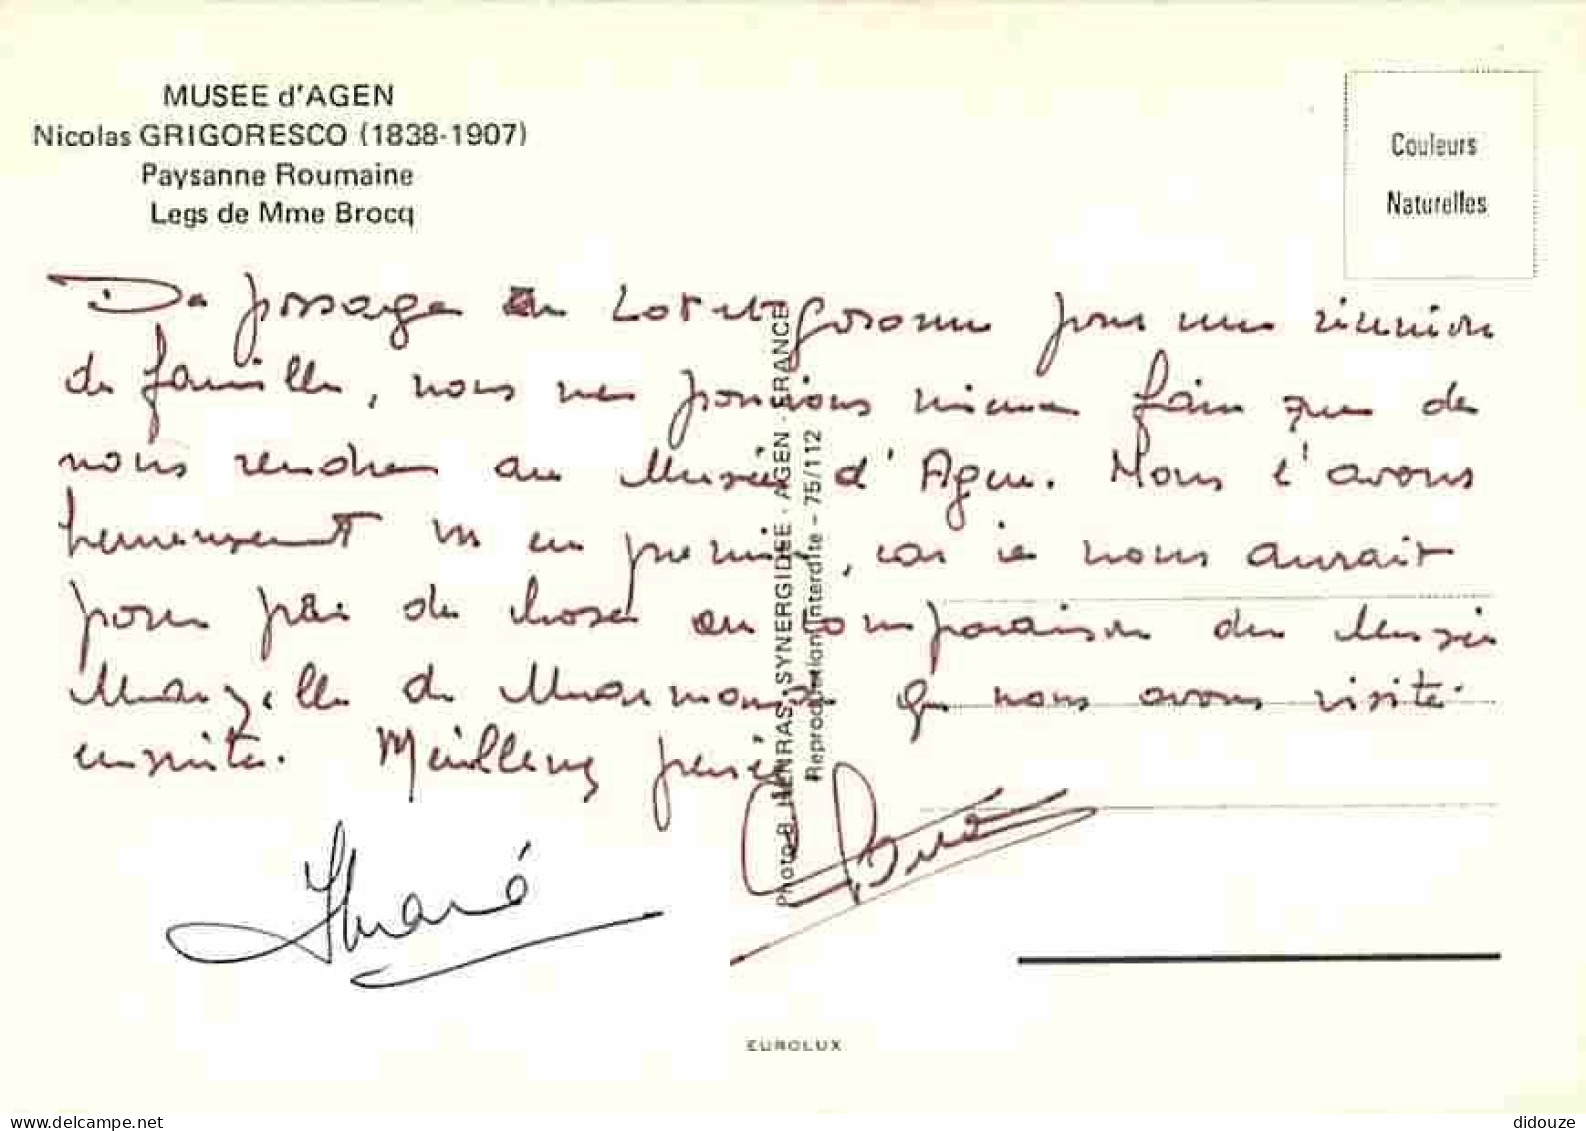 MUSEE d'AGEN
Nicolas GRIGORESCO (1838-1907)
Paysanne Roumaine
Legs de Mme Brocq
Couleurs
Naturelles
De passage en Lot et garonne pour une réunion
de famille, nous ne pouvions mieux faire que de
nous rendre au Musée d'Agen. Nous l'avons
heureusement vu en premier, car il nous aurait
paru peu de chose en comparaison du Musée
de que nous avons visité
ensuite. Meilleures pensées
Photo B. HENRAS, SYNERGIDEE - AGEN - FRANCE
Reproduction interdite - 75/112
EUROLUX
Delcampe.net
didouze